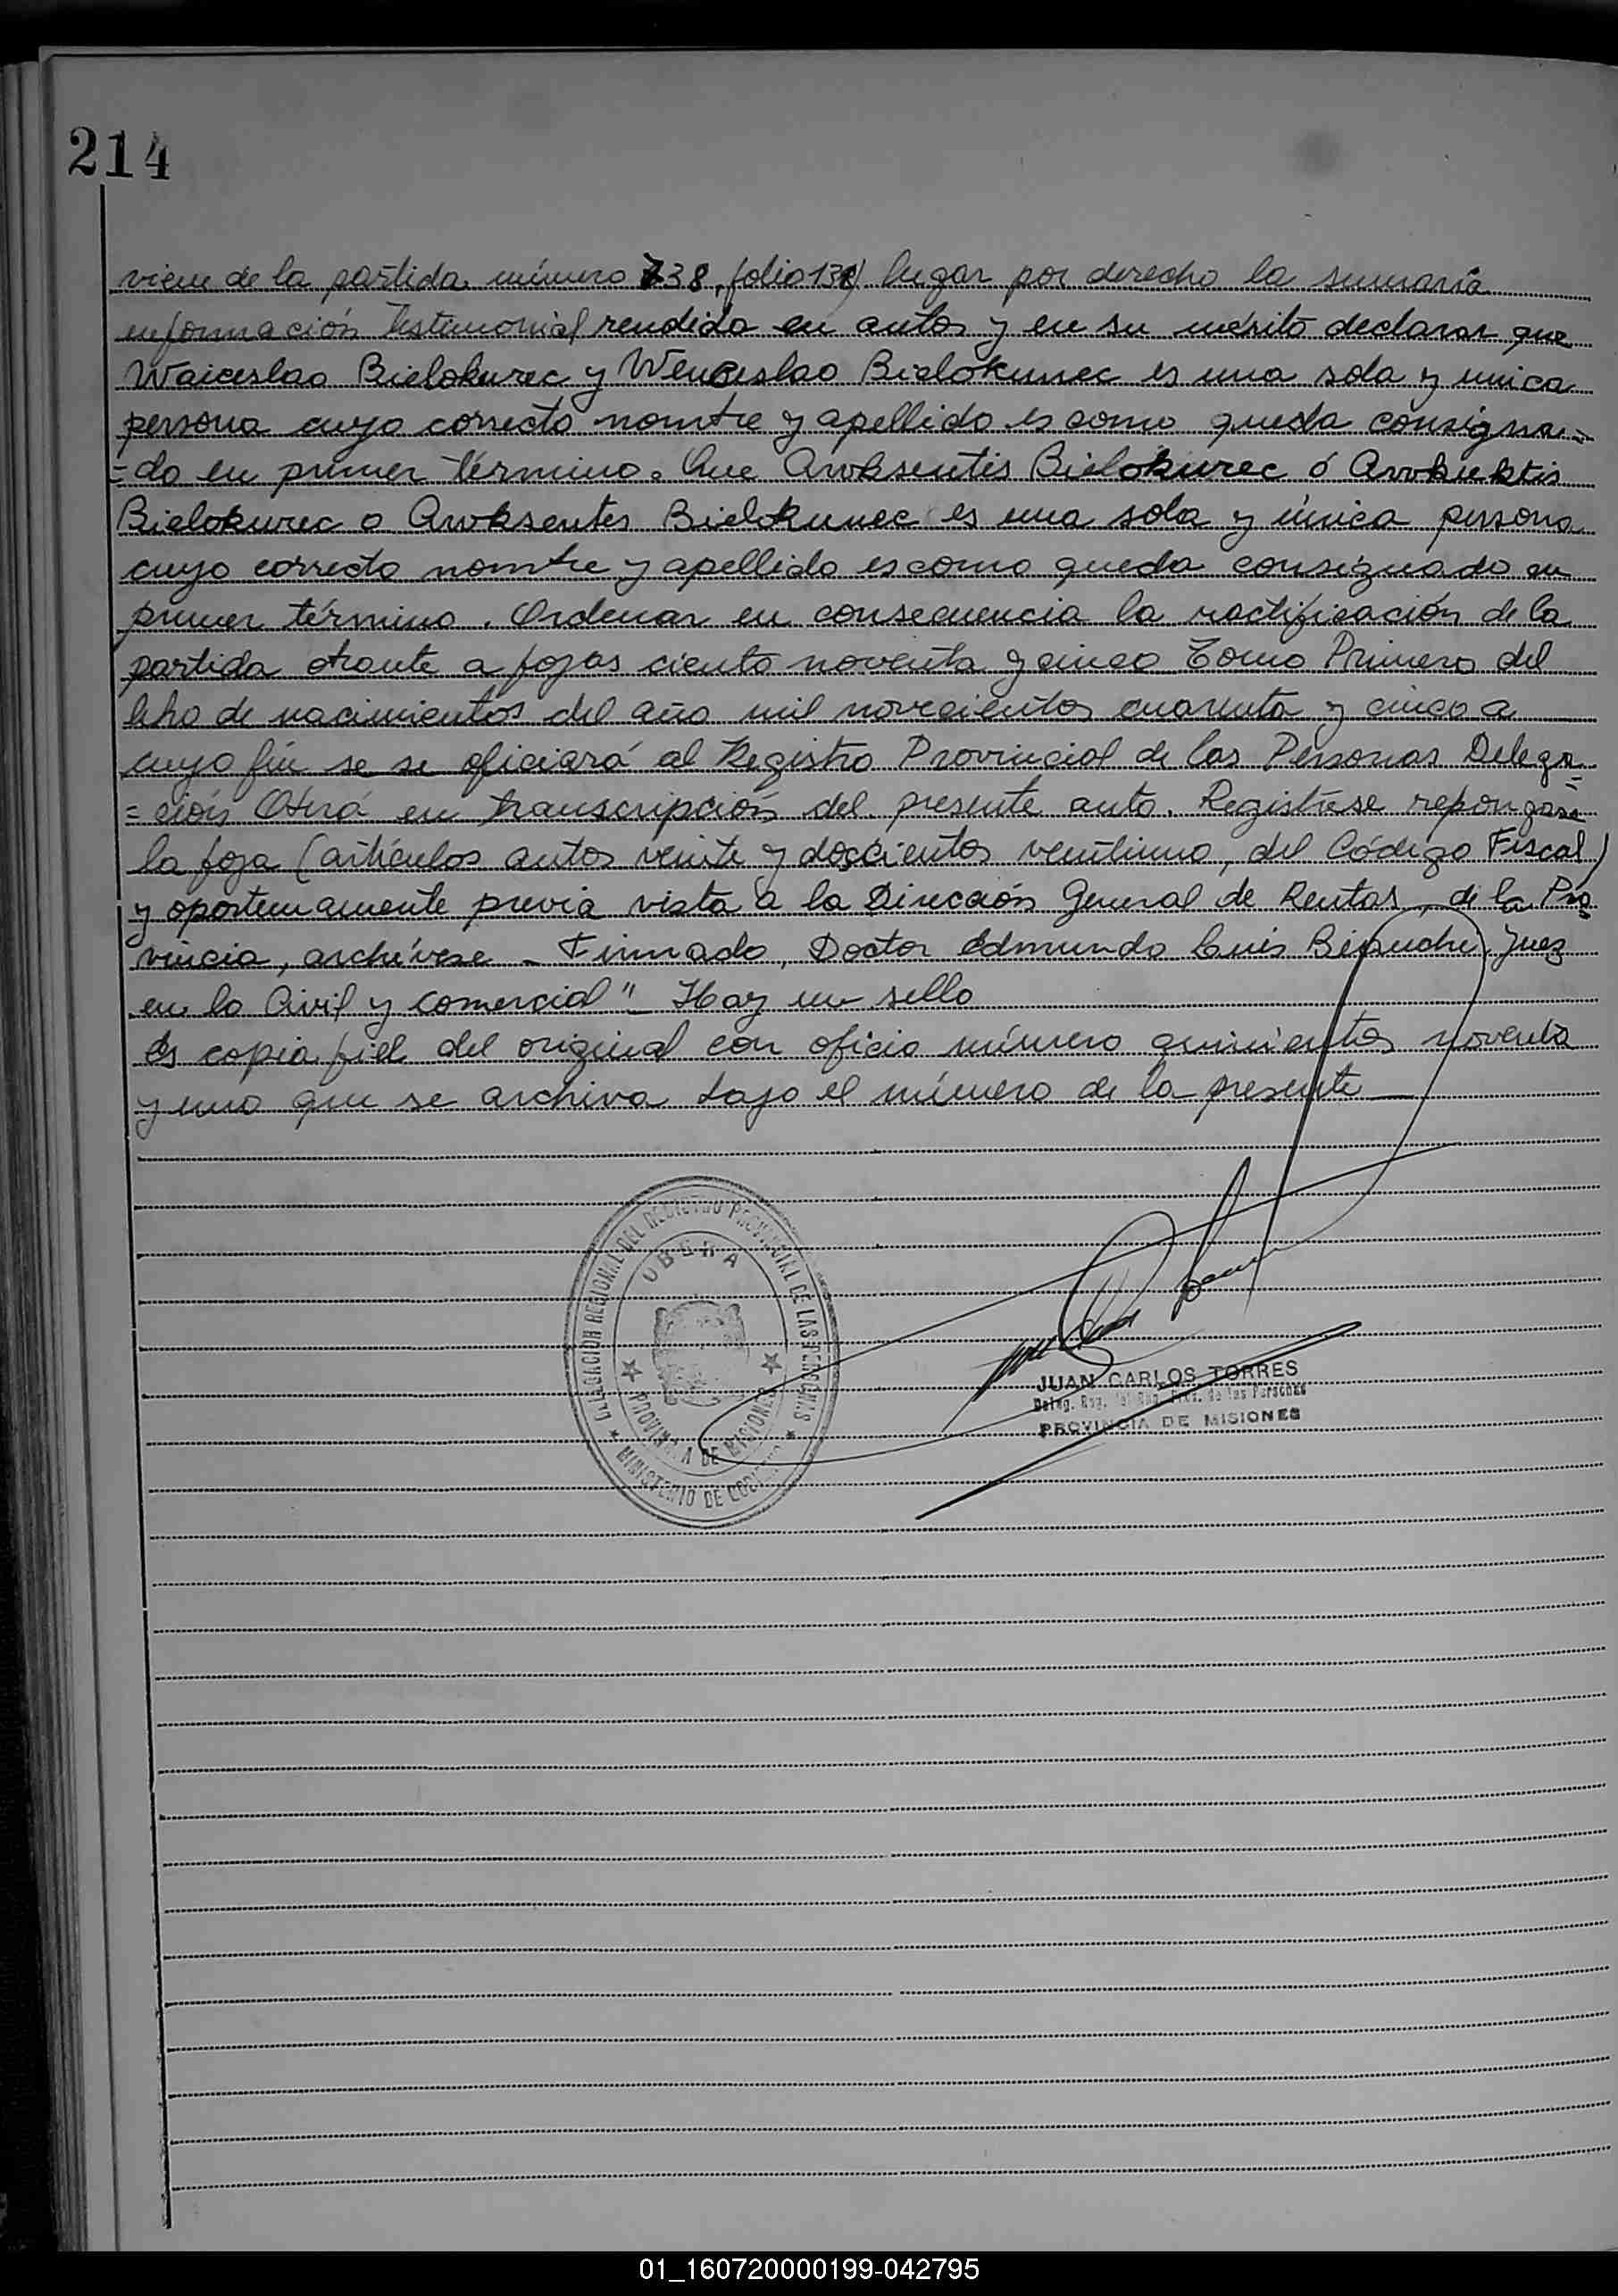 214
viene de la partida número 738, folio 138) lugar por derecho la sumaria
información testimonial rendida en autos y en su mérito declarar que
Waiceslao Bielokurec y Wenceslao Bielokunec es una sola y unica
persona cuyo correcto nombre y apellido es como queda consigna=
=do en primer término. Que Awksentis Bielokurec ó
Bielokurec o Awksentes Bielokunec es una sola y única persona
cuyo correcto nombre y apellido es como queda consignado en
primer término. Ordenar en consecuencia la rectificación de la
partida obrante a fojas ciento noventa y cinco Tomo Primero del
libro de nacimientos del año mil novecientos cuarenta y cinco a
cuyo fin se se oficiará al Registro Provincial de las Personas Delega=
=ción Oberá en transcripción del presente auto. Registrese repongase
la foja (artículos autos veinte y doscientos veintiuno, del Código Fiscal)
y oportunamente previa vista a la Dirección General de Rentas, de la Pro
vincia, archívese - Firmado, Doctor Edmundo Luis Bianchi, Juez
en lo Civil y Comercial" - Hay un sello
Es copia fiel del original con oficio número quinientos noventa
y uno que se archiva bajo el número de la presente
DELEGACION REGIONAL DEL REGISTRO PROVINCIAL DE LAS PERSONAS
OBERA
PROVINCIA DE MISIONES
MINISTERIO DE GOBIERNO
JUAN CARLOS TORRES
Deleg. Reg. del Reg. Prov. de las Personas
PROVINCIA DE MISIONES
01_160720000199-042795